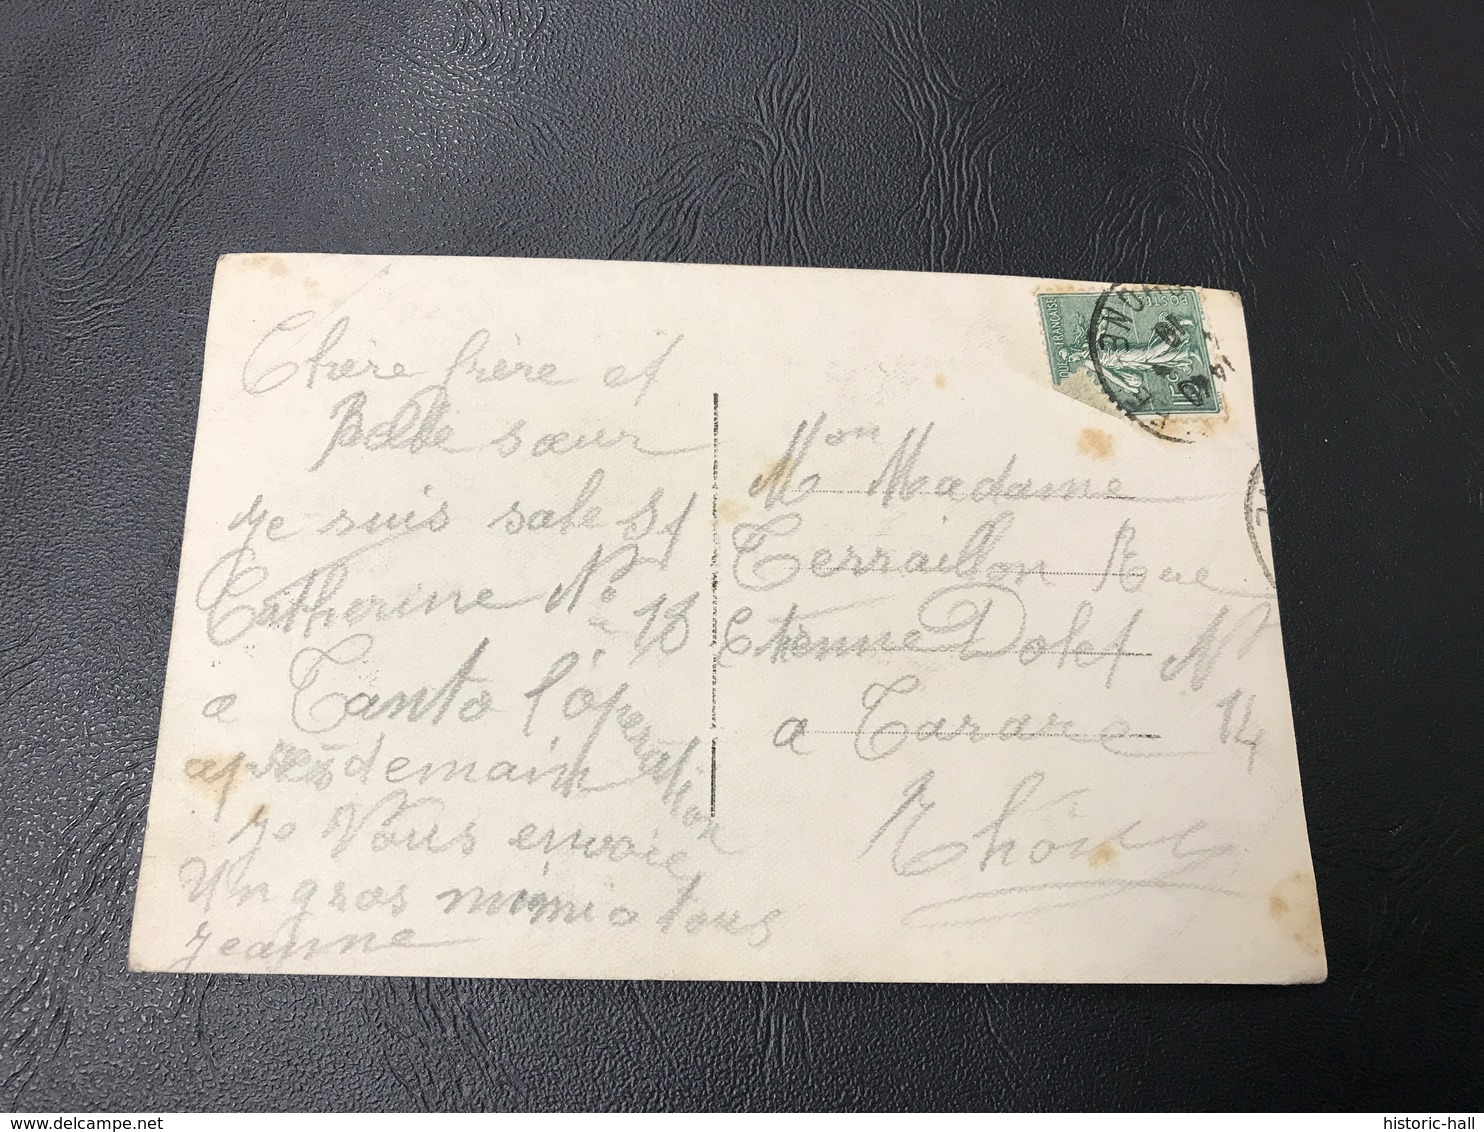 Chère frère et
Belle sœur
je suis sale St
Catherine No 18
a Tanto l'opération
après demain
je Vous envoie
Un gros mimi a tous
Jeanne
Mon Madame
Terraillon Rue
Etienne Dolet No
14
a Tarare
Rhône
POSTES
FRANÇAISE
15c
historic-hall